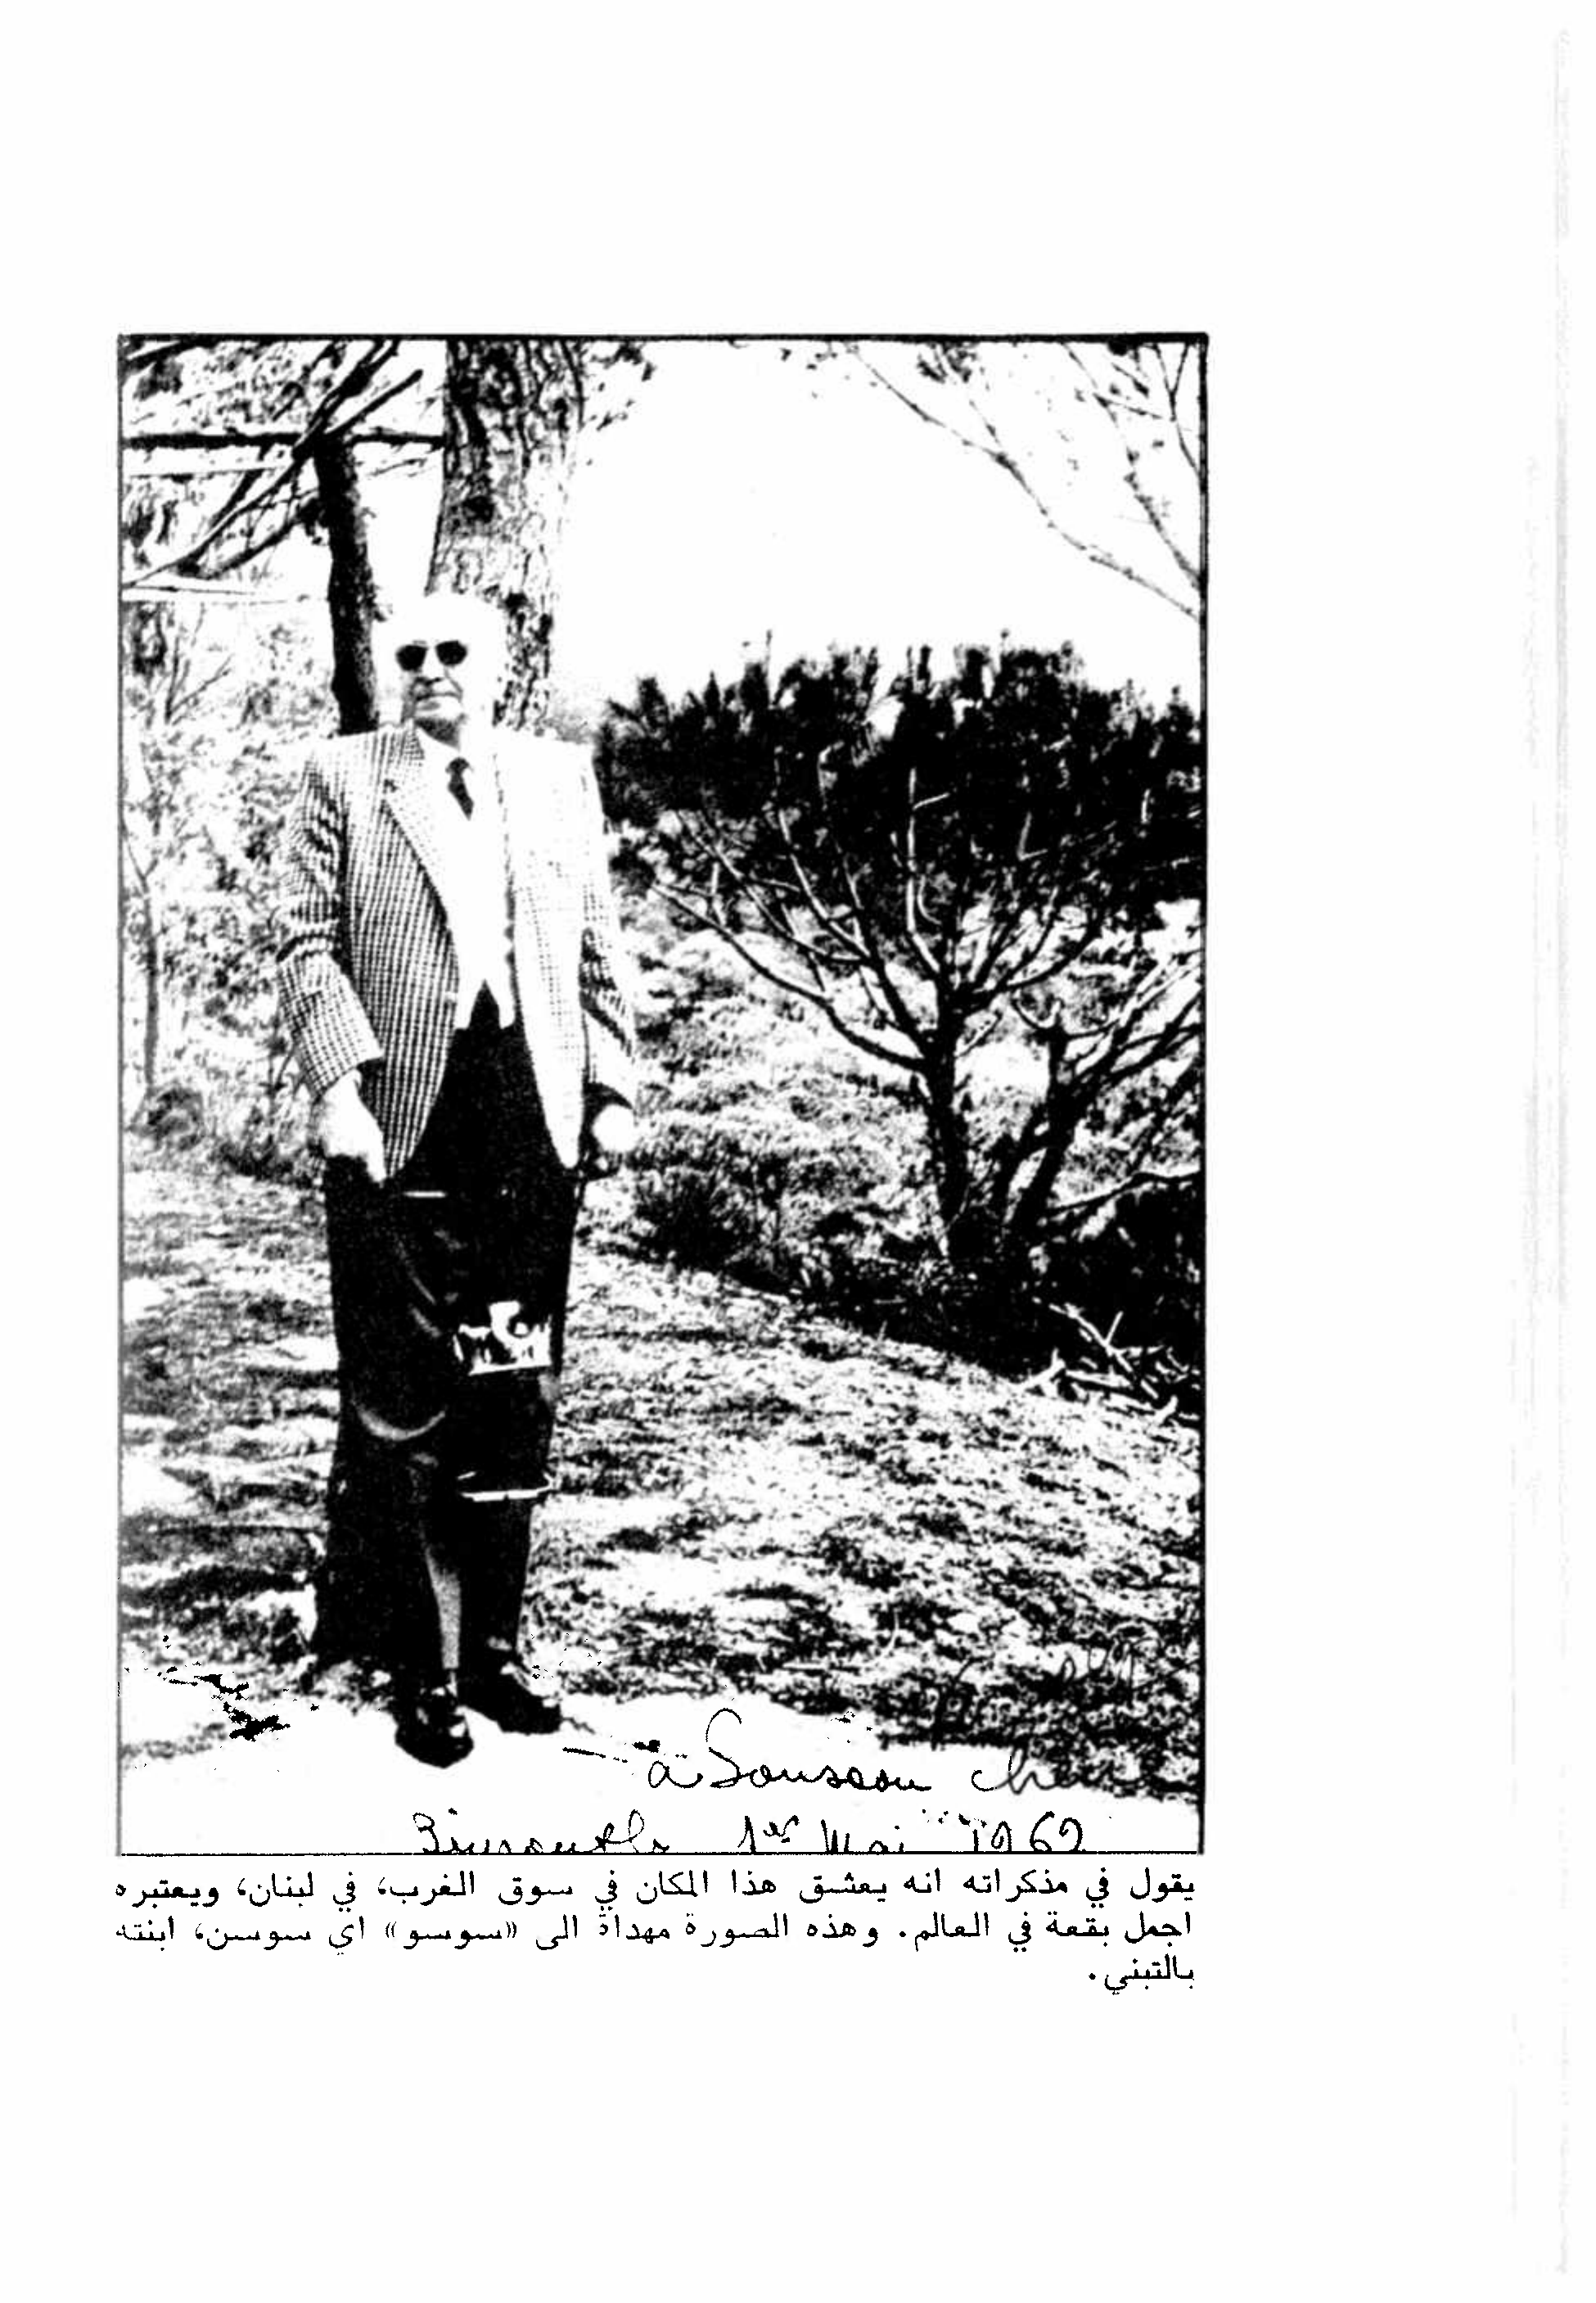 à Soussou chérie
1er Mai 1962
يقول في مذكراته انه يعشق هذا المكان في سوق الغرب، في لبنان، ويعتبره
اجمل بقعة في العالم. وهذه الصورة مهداة الى «سوسو» اي سوسن، ابنته
بالتبني.